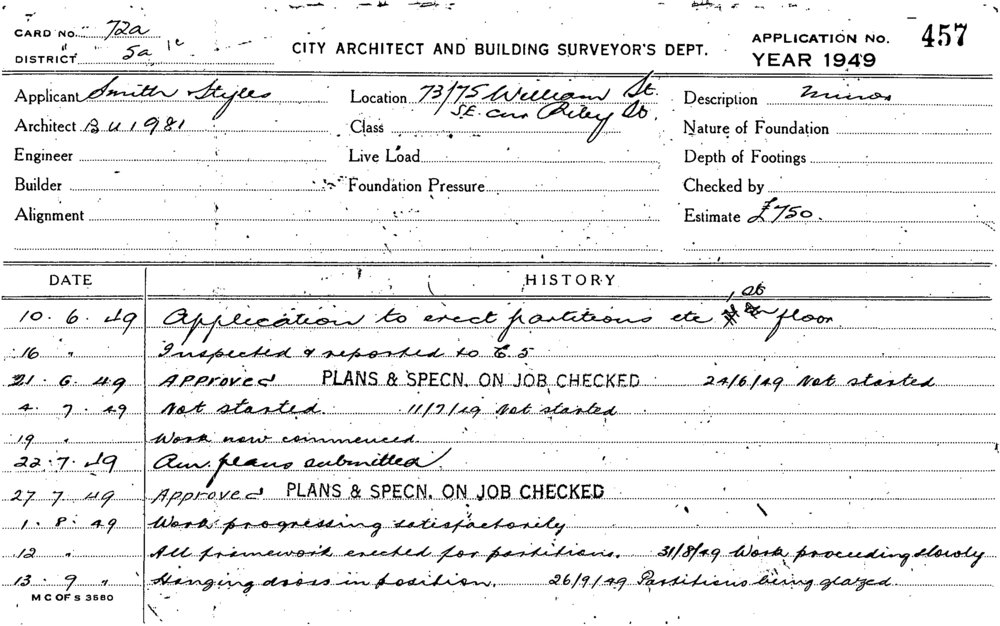 CARD NO. 72a
DISTRICT 5a 1c
CITY ARCHITECT AND BUILDING SURVEYOR'S DEPT.
APPLICATION NO. 457
YEAR 1949
Applicant Smith Styles Location 73/75 William St. Description Minor
S.E. cnr Riley St.
Architect B U 1981 Class Nature of Foundation
Engineer Live Load Depth of Footings
Builder Foundation Pressure Checked by
Alignment Estimate £750.
DATE HISTORY
10.6.49 Application to erect partitions etc 1st floor
16 " Inspected & reported to E.5
21.6.49 Approved PLANS & SPECN. ON JOB CHECKED 24/6/49 Not started
4.7.49 Not started. 11/7/49 Not started
19 " Work now commenced
22.7.49 Am. plans submitted.
27 7 49 Approved PLANS & SPECN. ON JOB CHECKED
1.8.49 Work progressing satisfactorily
12 " All framework erected for partitions. 31/8/49 Work proceeding slowly
13.9 " Hanging doors in position. 26/9/49 Partitions being glazed.
M C OF S 3580